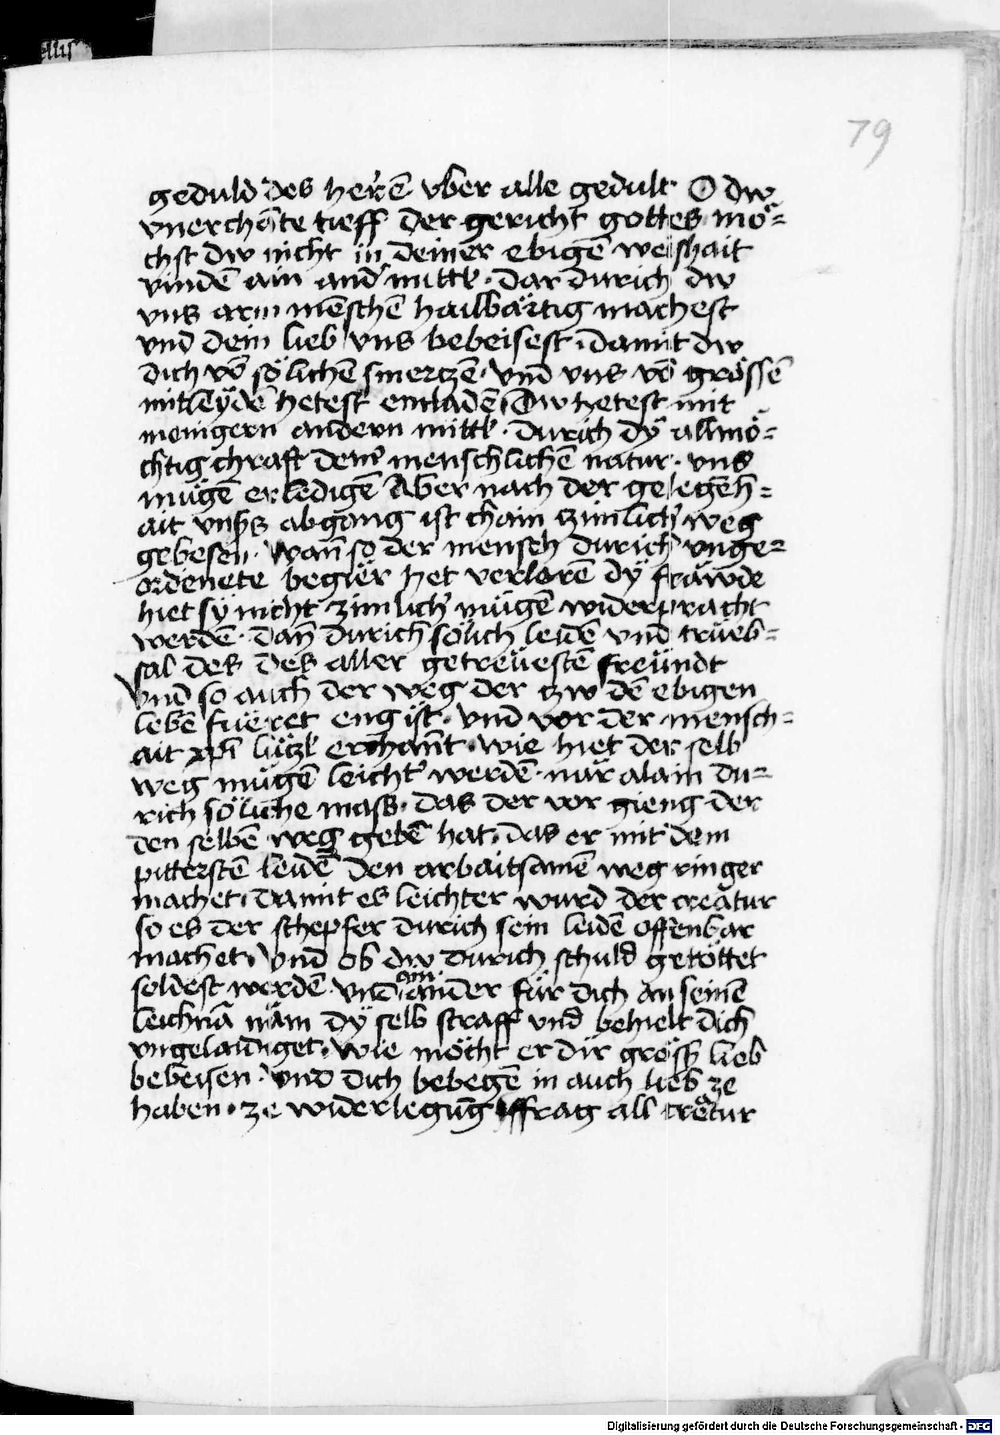 79
geduld des herẽ vber alle gedult O dw
vnerchãte tieff der gericht gottes mö=
chst dw nicht in deiner ebigẽ weishait
vindẽ ain and' mittl · dar durich dw
vns arm mẽschẽ hailbärtig machest
vnd dein lieb vns bebeisest · damit dw
dich võ sölichẽ smerczẽ · vnd vns võ grössẽ
mitleydẽ hetest entladẽ Dw hetest mit
menigern andern mittl · durich dÿ allmö=
chtig chraft dein' menschlichẽ natur · vns
mügẽ erledigẽ Aber nach der gelegẽh=
ait vnsers abgang ist chain zimlich' weg
gebesen · wañ so der mensch durich vnge=
ordenete begier het verlorẽ dÿ fräwde
hiet sÿ nicht zimlich' mügẽ widerpracht
werdẽ · dañ durich sölich leidẽ vnd trüeb=
sal des des aller getreüestẽ freündt
Vnd so auch der weg der zw dẽ ebigen
lebẽ füeret eng ist · vnd vor der mensch=
ait xpi lüczl erchañt · wie hiet der selb
weg mügẽ leicht' werdẽ · när alain du=
rich söliche mass · das der vor gieng der
den selbẽ weg gebẽ hat · das er mit dem
pitterstẽ leidẽ den arbaitsamẽ weg ringer
machet · damit es leichter wurd der creatur
so es der schepfer durich sein leidẽ offenbar
machet · Vnd ob dw durich schuld getöttet
soldest werdẽ · vnd ain ander für dich an seinẽ
leichnã näm dÿ selb straff vnd behielt dich
vngelaidiget · wie möcht er dir gröss' lieb
bebeisen · vnd dich bebegẽ in auch lieb ze
haben · ze widerlegũg ffrag all creatur
Digitalisierung gefördert durch die Deutsche Forschungsgemeinschaft - DFG